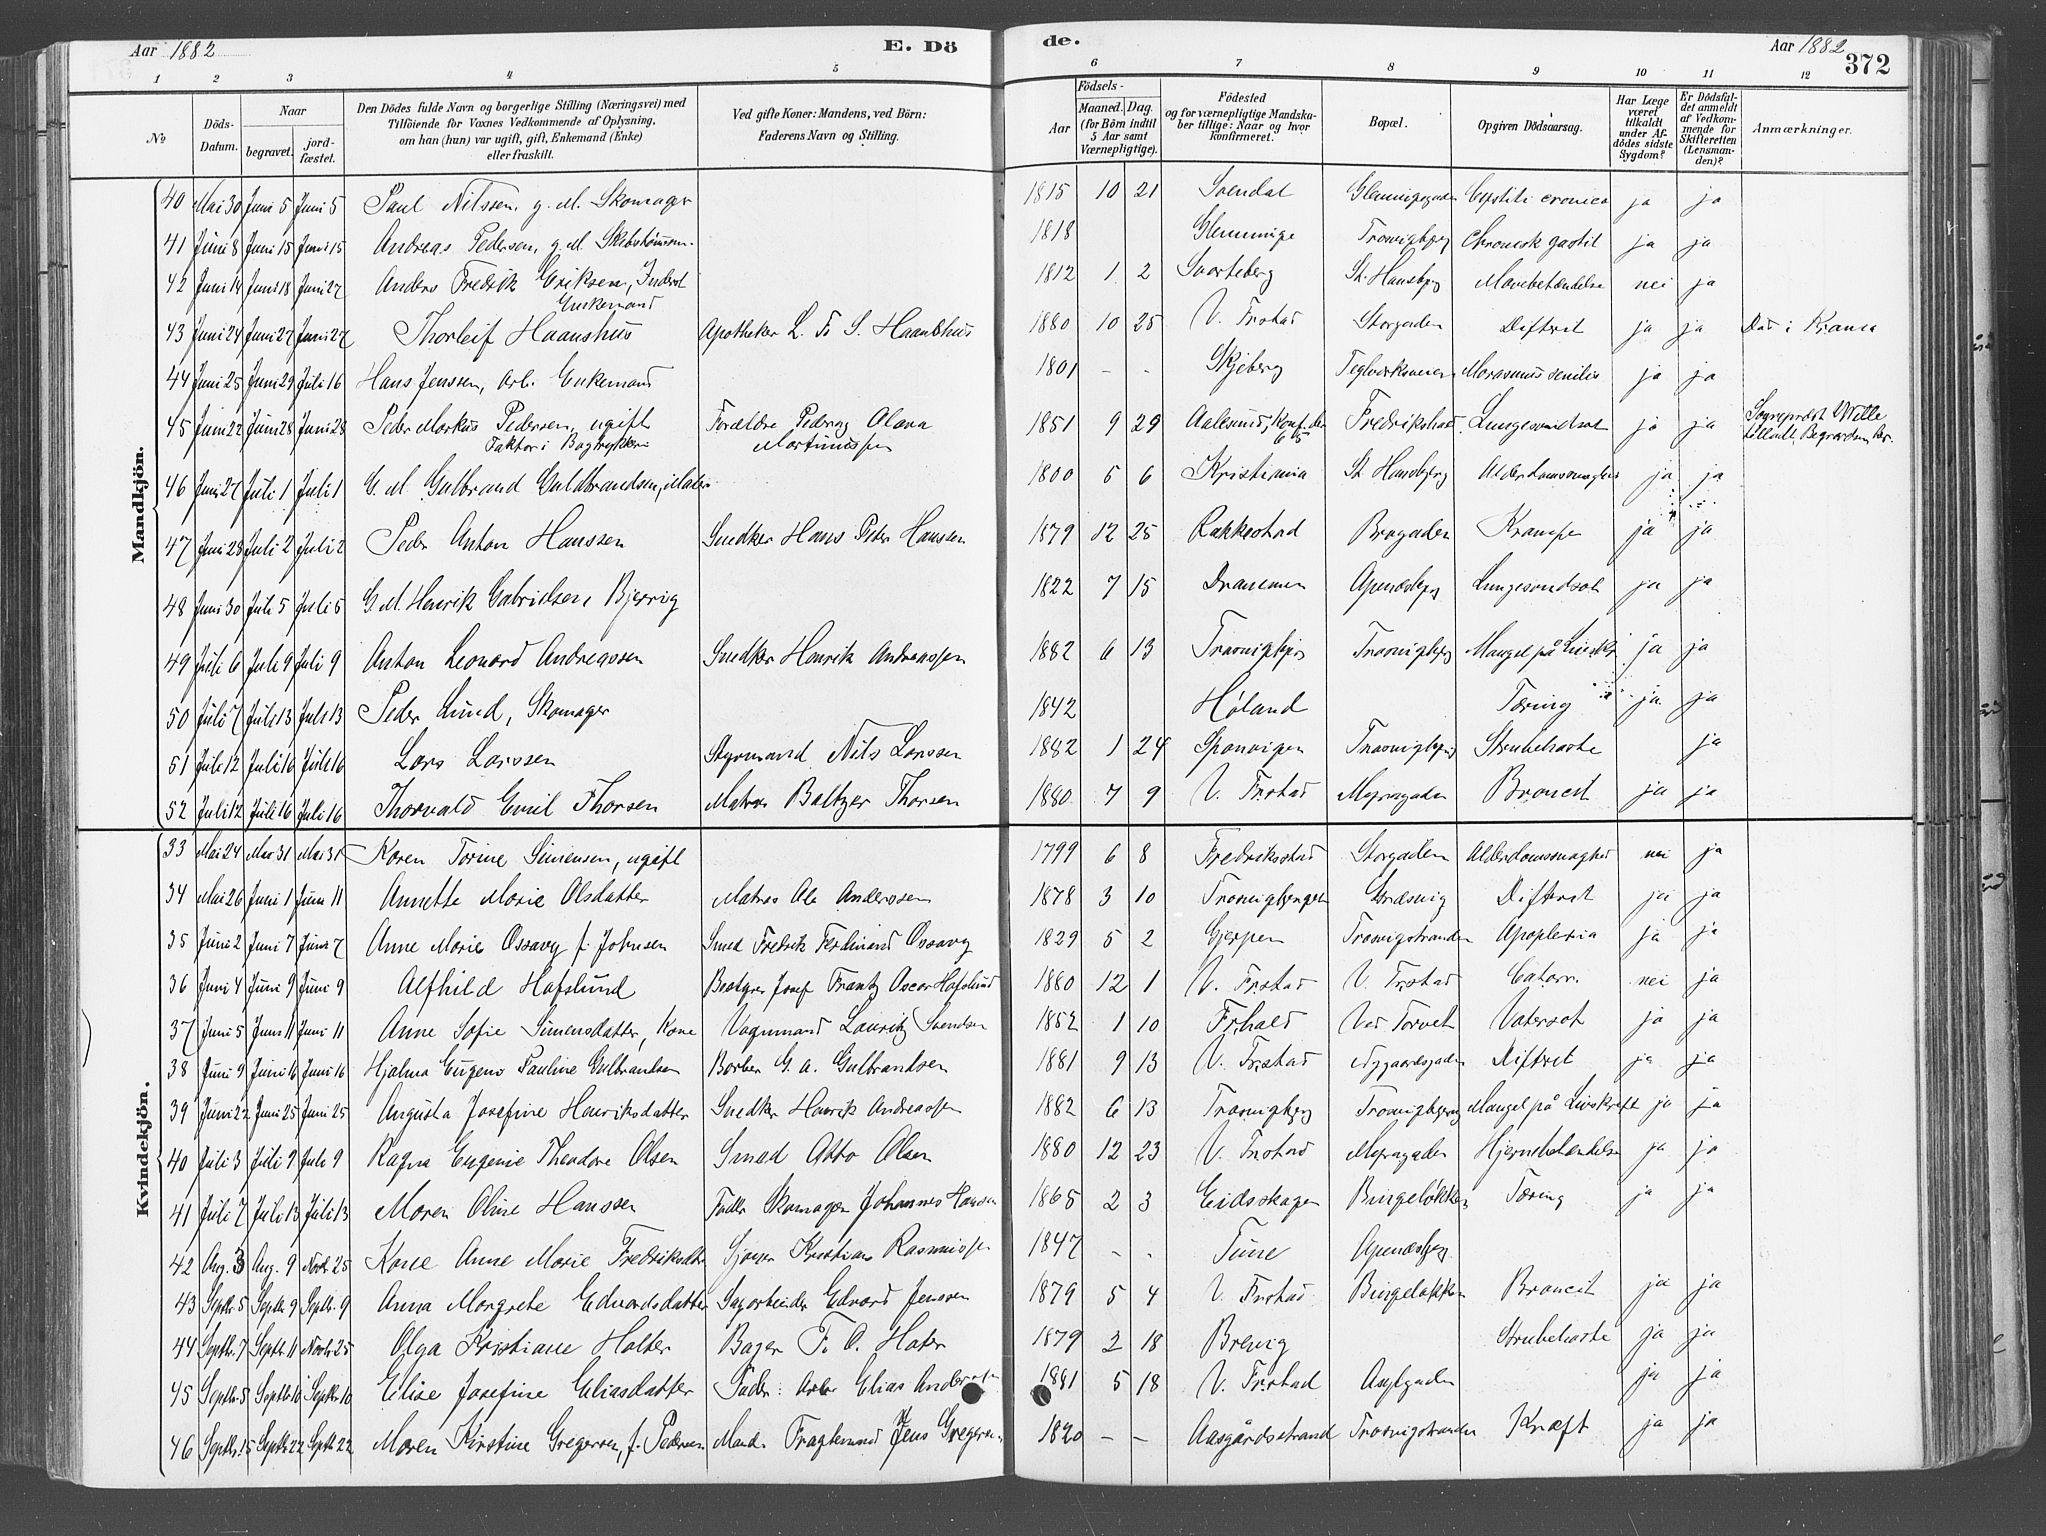 Aar 1882 E. Dö de. Aar 1882 372
1 2 3 4 5 6 7 8 9 10 11 12
№ Döds-Datum. Naar begravet. jordfæstet. Den Dödes fulde Navn og borgerlige Stilling (Næringsvei) med Tilföiende for Voxnes Vedkommende af Oplysning, om han (hun) var ugift, gift, Enkemand (Enke) eller fraskilt. Ved gifte Koner: Mandens, ved Börn: Faderens Navn og Stilling. Födsels- Aar Maaned. Dag. (for Börn indtil 5 Aar samt Værnepligtige). Födested og for værnepligtige Mandskaber tillige: Naar og hvor konfirmeret. Bopæl. Opgiven Dödsaarsag. Har Læge været tilkaldt under Afdödes sidste Sygdom? Er Dödsfaldet anmeldt af Vedkommende for Skifteretten (Lensmanden)? Anmærkninger.
Mandkjön.
40 Mai 30 Juni 5 Juni 5 Paul Nilssen, g. M. Skomager 1815 10 21 cronica ja ja
41 Juni 8 Juni 15 Juni 15 Andreas Pedersen, g. M. 1818 Glemminge Chronisk ja ja
42 Juni 14 Juni 18 Juni 27 Anders Fredrik Eriksen, Inderst Enkemand 1812 1 2 Svarteberg St. Hansbjerg Mavebetændelse nei ja
43 Juni 24 Juni 27 Juni 27 Thorleif Haanshus Apotheker L. Fr. S. Haanshus 1880 10 25 V. Frstad Storgaden Difterit ja ja Død i Krania
44 Juni 25 Juni 29 Juli 16 Hans Jenssen, Arb. Enkemand 1801 - - Skjeberg Marasmus senilis ja ja
45 Juni 22 Juni 28 Juni 28 Peder Markus Pedersen, ugift Faktor i Bogtrykkeri Forældre Peder og Olava Martinussen 1851 9 29 Aalesund, Konf. der 65 Fredrikshald Lungesvindsot ja ja Sognepræst Wille
46 Juni 27 Juli 1 Juli 1 G. M. Gulbrand Guldbrandsen, Maler 1800 5 6 Kristiania St. Hansbjerg Alderdomssvaghed ja ja
47 Juni 28 Juli 2 Juli 2 Peder Anton Hanssen Snedker Hans Peder Hanssen 1879 12 25 Rakkestad Brogaden Krampe ja ja
48 Juni 30 Juli 5 Juli 5 G. M. Henrik Gabrielsen Bjerrig 1822 7 15 Drammen Apenæsbjerg Lungesvindsot ja ja
49 Juli 6 Juli 9 Juli 9 Anton Leonard Andreassen Snedker Henrik Andreassen 1882 6 13 Trosvigbjerg Trosvigbjerg Mangel på Livskr. ja ja
50 Juli 7 Juli 13 Juli 13 Peder Lund, Skomager 1842 Høland Tæring ja ja
51 Juli 12 Juli 16 Juli 16 Lars Larssen Styrmand Nils Larssen 1882 1 24 Spanvigen Trosvigbjerg Strubehoste ja
52 Juli 12 Juli 16 Juli 16 Thorvald Emil Thorsen Matros Baltzer Thorsen 1880 7 9 V. Frstad Broncit ja ja
Kvindekjön.
33 Mai 24 Mai 31 Mai 31 Karen Torine Simensen, ugift 1799 6 8 Fredriksstad Storgaden Alderdomssvaghed nei ja
34 Mai 26 Juni 1 Juni 11 Annette Marie Olsdatter Matros Ole Anderssen 1878 3 10 Trosvigbergen Græsvig Difterit ja ja
35 Juni 2 Juni 7 Juni 7 Anne Marie Ossavy f. Johnsen Smed Fredrik Ferdinand Ossavy 1829 5 2 Gjerpen Trosvigstranden Apoplexia ja ja
36 Juni 4 Juni 9 Juni 9 Alfhild Hafslund Bestyrer Josef Frantz Oscar Hafslund 1880 12 1 V. Frstad V. Frstad Catarr. nei ja
37 Juni 5 Juni 11 Juni 11 Anne Sofie Simensdatter, Kone Vognmand Lauritz Svendsen 1852 1 10 Frhald Ved Torvet Vatersot ja ja
38 Juni 9 Juni 16 Juni 16 Hjalma Eugena Pauline Gulbrandsen Barber G. A. Gulbrandsen 1881 9 13 V. Frstad Nygaardsgaden Difterit ja ja
39 Juni 22 Juni 25 Juni 25 Augusta Josefine Henriksdatter Snedker Henrik Andreassen 1882 6 13 Trosvigbjerg Trosvigbjerg Mangel på Livskraft ja ja
40 Juli 3 Juli 9 Juli 9 Ragna Eugenie Theodore Olsen Smed Otto Olsen 1880 12 23 V. Frstad Hjernebetændelse ja ja
41 Juli 7 Juli 13 Juli 13 Maren Oline Hanssen Fader Skomager Johannes Hansen 1865 2 3 Eidsskogen Bingeløkken Tæring ja ja
42 Aug. 3 Aug. 9 Novbr 25 Kone Anne Marie Fredriksdtr Kristian Rasmussen 1847 - - Tune Apenæsbjerg
43 Septbr. 5 Septbr 9 Septbr. 9 Anna Margrete Edvardsdatter Sagarbeider Edvard Jenssen 1879 5 4 V. Frstad Bingeløkken Broncit ja ja
44 Septbr. 7 Septbr. 11 Novbr 25 Olga Kristiane Holter Bager F. O. Holter 1879 2 18 Brevig Strubehoste ja ja
45 Septbr. 5 Septbr. 10 Septbr 10 Elise Josefine Eliasdatter Fader: Arbr Elias Anderssen 1881 5 18 V. Frstad Asylgaden ja ja
46 Septbr. 15 Septbr 22 Septbr 22 Maren Kirstine Gregersen, f. Pedersen Mand: Fragtemand Jens Gregersen 1820 - - Aasgårdsstrand Trosvigstranden Kræft ja ja